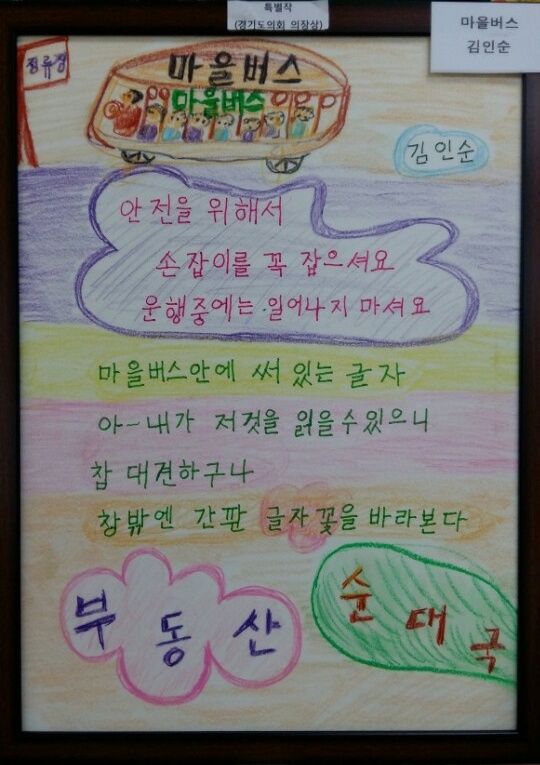 특별작
(경기도의회 의장상)
마을버스
김인순
정류장
마을버스
마을버스
김인순
안전을 위해서
손잡이를 꼭 잡으셔요
운행중에는 일어나지 마셔요
마을버스안에 써 있는 글자
아-내가 저것을 읽을수있으니
참 대견하구나
창밖엔 간판 글자꽃을 바라본다
부동산
순대국